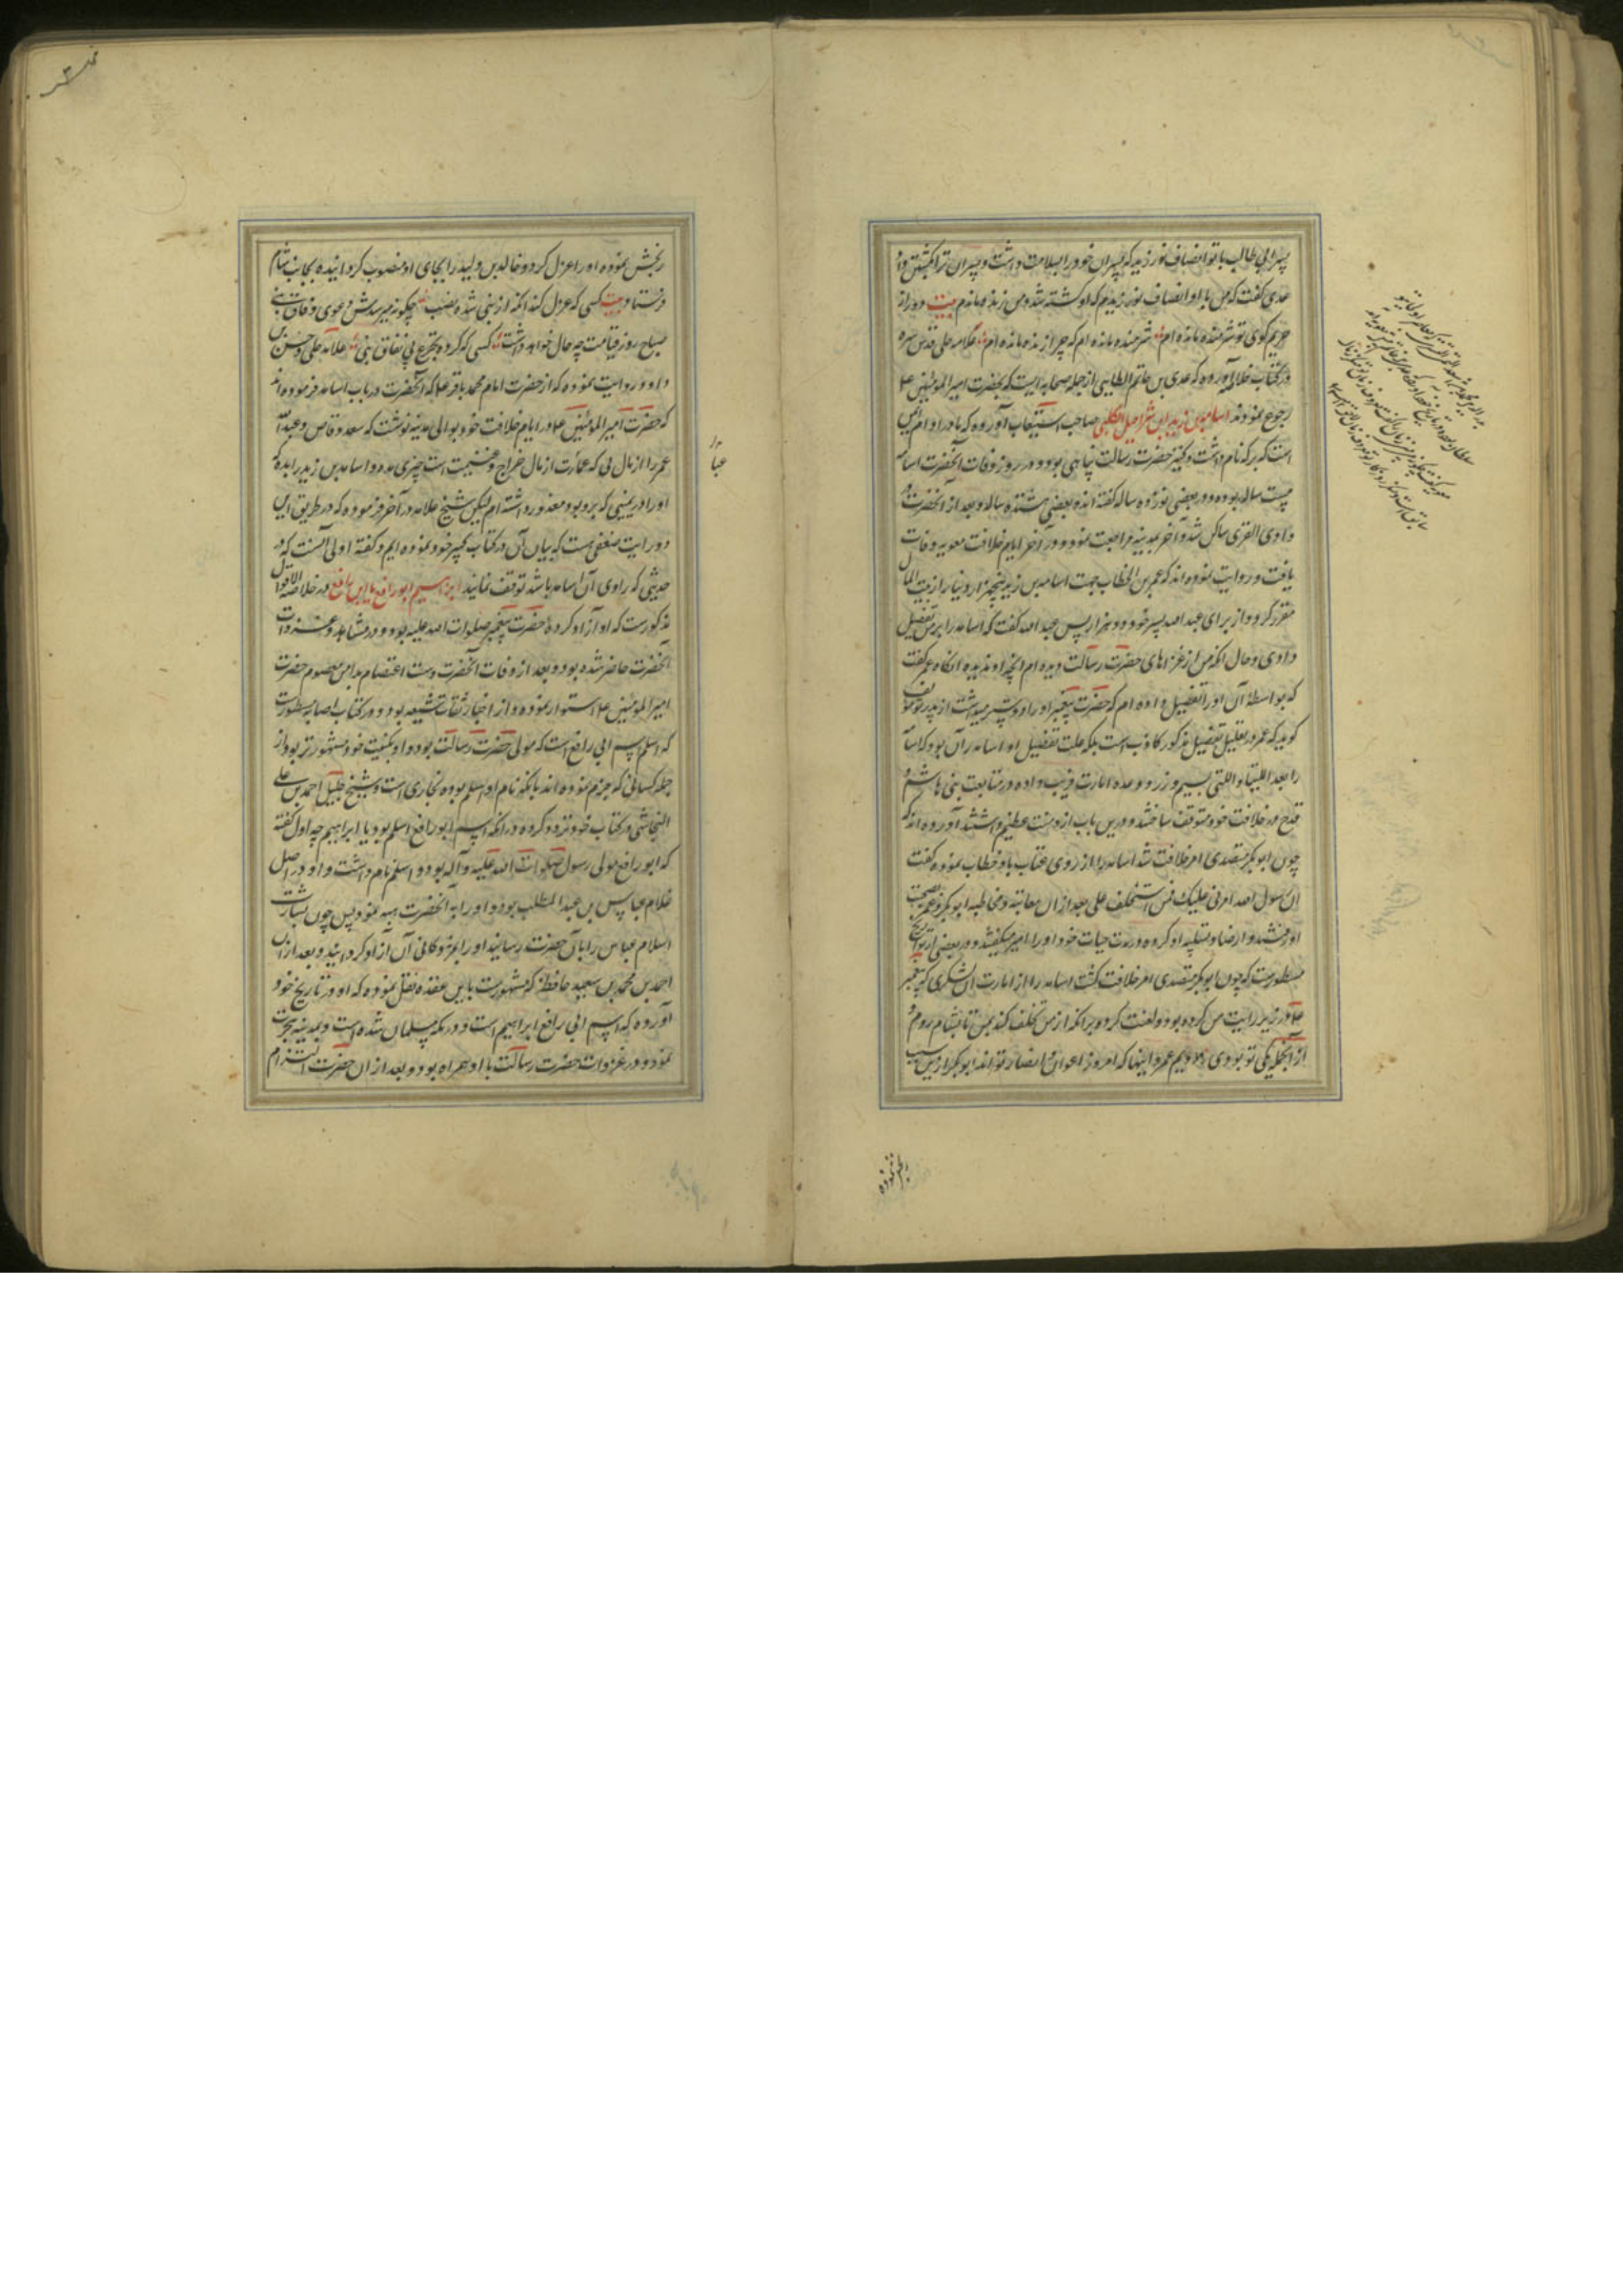 پسر ابی طالب با تو انصاف نورزید که پسران خود را بسلامت داشت و پسران ترا بکشتن داد
عدی گفت که من با او انصاف نورزیدم که او کشته شد و من زنده ماندم بیت دور از
حریم کوی تو شرمنده مانده ام شرمنده مانده ام که چرا زنده مانده ام علامه حلی قدس سره
در کتاب خلاصه آورده که عدی بن حاتم الطایی از جمله صحابه ایست که بحضرت امیر المومنین ع
رجوع نمودند اسامه بن زید ابن شراحیل الکلبی صاحب استیعاب آورده که مادر او ام ایمن
است که برکه نام داشت و کنیز حضرت رسالت پناهی بود و در روز وفات آنحضرت اسامه
بیست ساله بوده و بعضی نوزده ساله گفته اند و بعضی هشتده ساله و بعد از آنحضرت در
وادی القری ساکن شد و آخر بمدینه مراجعت نمود و در آخر ایام خلافت معویه وفات
یافت و روایت نموده اند که عمر بن الخطاب جهت اسامه بن زید پنجهزار دینار از بیت المال
مقرر کرد و از برای عبد الله پسر خود دو هزار پس عبد الله گفت که اسامه را بر من تفضیل
دادی و حال انکه من از غزاهای حضرت رسالت دیده ام انچه او ندیده انکاه عمر گفت
که بواسطهٔ آن او را تفضیل داده ام که حضرت پیغمبر او را دوستر میداشت از پدر تو مولف
کوید که عمر در تعلیل تفضیل مذکور کاذب است بلکه علت تفضیل او اسامه را آن بود که اسامه
را بعد اللتیا و اللتی بسیم و زر و وعده امارت فریب داده در متابعت بنی هاشم و
قدح در خلافت خود متوقف ساختند و درین باب ازو منت عظیم داشتند آورده اند که
چون ابو بکر متصدی امر خلافت شد اسامه را از روی عتاب باو خطاب نموده گفت
ان رسول الله امرنی علیک فمن استخلفک علی بعد از ان معاتبه و مخاطبه ابو بکر و عمر بصحبت
او رفتند و ارضا و تسلیه او کرده در مدت حیات خود او را امیر میگفتند و در بعضی از تواریخ
مسطورست که چون ابو بکر متصدی امر خلافت کشت اسامه را از امارت ان لشکری که پیغمبر
در زیر رایت من کرده بود و لعنت کرد بر انکه از من تخلف کند بمن تا بشام روم و
از انجمله یکی تو بودی دویم عمر و اینها که امروز اعوان و انصار تو اند ابو بکر ازین سبب
بر نموده
رنجش نموده او را عزل کرد و خالد بن ولید را بجای او منصوب کردانیده بجانب شام
فرستاد بیت کسی که عزل کند انکه از نبی شده نصب چکونه میرسدش دعوی وفاق نبی
صباح روز قیامت چه حال خواهد داشت کسی که کرده تجرع پی نفاق نبی علامه حلی و حسن بن
داود روایت نموده که از حضرت امام محمد باقر ع که آنحضرت در باب اسامه فرموده اند
که حضرت امیر المومنین ع در ایام خلافت خود بوالی مدینه نوشت که سعد وقاص و عبد الله
عمر را از مال فی که عبارت از مال خراج و غنیمت است چیزی مده و اسامه بن زید را بده که
او را در یمینی که برو بود معذور داشته ام لیکن شیخ علامه در آخر فرموده که در طریق این
روایت ضعفی هست که بیان آن در کتاب کبیر خود نموده ایم و کفته اولی آنست که در
حدیثی که راوی آن اسامه باشد توقف نمایند ابراهیم ابو رافع یا ابن رافع در خلاصه الاقوال
مذکورست که او آزاد کردهٔ حضرت پیغمبر صلوات الله علیه بود و در مشاهد و غزوات
آنحضرت حاضر شده بود و بعد از وفات آنحضرت دست اعتصام بدامن معصوم حضرت
امیر المومنین ع استوار نموده و از اخیار ثقات شیعه بود و در کتاب اصابه مسطورست
که اسلم اسم ابی رافع است که مولی حضرت رسالت بود و او بکنیت خود مشهورتر بود از
جمله کسانی که جزم نموده اند بانکه نام او اسلم بوده بخاری است و شیخ جلیل احمد بن علی
النجاشی در کتاب خود تردد کرده در انکه اسم ابو رافع اسلم بود یا ابراهیم چه اول کفته
که ابو رافع مولی رسول صلوات الله علیه و آله بود و اسلم نام داشت و او در اصل
غلام عباس بن عبد المطلب بود و او را به آنحضرت هبه نمود پس چون بشارت
اسلام عباس را بآن حضرت رسانید او را بمژدکانی آن آزاد کردانید و بعد از ان
احمد بن محمد بن سعید حافظ که مشهورست بابن عقده نقل نموده که او در تاریخ خود
آورده که اسم ابی رافع ابراهیم است و در مکه مسلمان شده است و بمدینه هجرت
نمود و در غزوات حضرت رسالت با او همراه بود و بعد از ان حضرت التزام